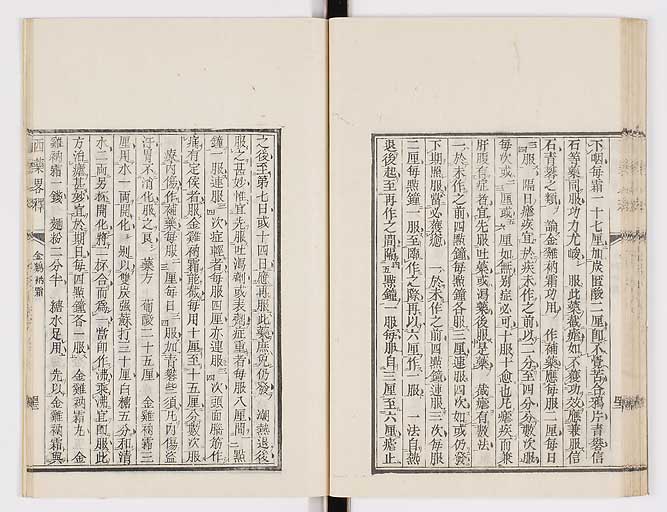 下咽每霜一十七厘加炭𨡓酸二厘即不覺苦合鴉片青礬信
石等藥同服功力尤峻　服此藥截瘧如不獲功效應兼服信
石青礬之類　論金雞衲霜功用　作補藥應每服二厘每日
三服　隔日瘧疾宜於疾未作之前以二分至四分分數次服
每次或三厘或六厘如無別症必可十服十愈也凡瘧疾而兼
肝腹有症者宜先服吐藥或瀉藥後服是藥　截瘧有數法
一於未作之前四點鐘每點鐘各服三厘連服四次如或仍發
下期照服當必獲愈　一於未作之前四點鐘連服三次每服
二厘每點鐘一服至臨作之際再以六厘作一服　一法自熱
退後起至再作之間隔四五點鐘一服每服自三厘至六厘瘧止
之後至第七日或十四日應再服此藥庶免仍發　潮熱退後
服之甚妙惟宜先服吐瀉劑或表劑症重者每服八厘間二三點
鐘一服連服三四次症輕者每服四厘亦連服三四次頭腦筋作
痛有定侯者服金雞衲霜能救每用十厘至十五厘分數次服
療內傷作補藥每服一二厘每日二三服加青礬些須凡內傷盜
汗胃不消化服之良　藥方　葡酸二十五厘　金雞衲霜三
厘用水一兩開化　別以雙炭強蘇打三十厘白糖五分和清
水二兩另杯開化將二杯合而為一當即作沸乘沸宜即服此
方治瘧甚妙宜於期日每四點鐘各一服　金雞衲霜丸　金
雞衲霜一錢　麵粉二分半　糖水足用　先以金雞衲霜與
西藥畧釋
金雞衲霜